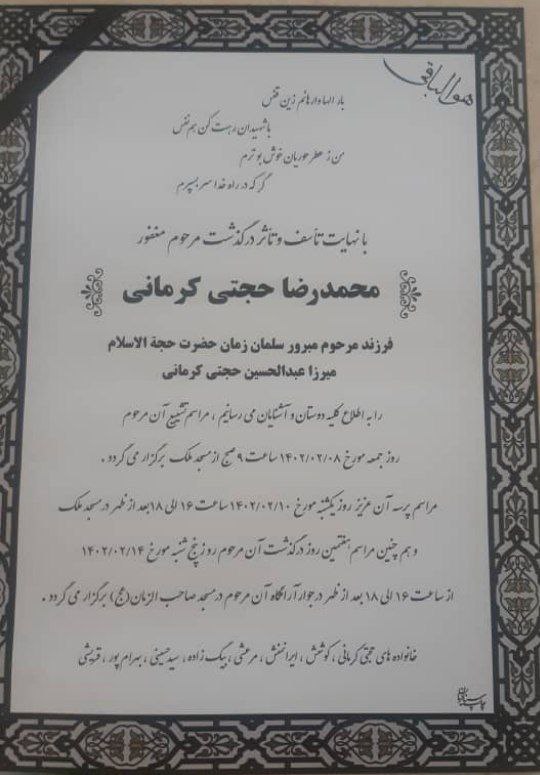 هوالباقی
بار الها وارهانم زین قفس
با شهیدان رهت کن هم نفس
من ز عطر حوریان خوش بو ترم
گر که در راه خدا سر بسپرم
با نهایت تأسف و تأثر درگذشت مرحوم مغفور
محمدرضا حجتی کرمانی
فرزند مرحوم مبرور سلمان زمان حضرت حجة الاسلام
میرزا عبدالحسین حجتی کرمانی
را به اطلاع کلیه دوستان و آشنایان می رسانیم ، مراسم تشییع آن مرحوم
روز جمعه مورخ ۱۴۰۲/۰۲/۰۸ ساعت ۹ صبح از مسجد ملک برگزار می گردد .
مراسم پرسه آن عزیز روز یکشنبه مورخ ۱۴۰۲/۰۲/۱۰ ساعت ۱۶ الی ۱۸ بعد از ظهر در مسجد ملک
و هم چنین مراسم هفتمین روز درگذشت آن مرحوم روز پنج شنبه مورخ ۱۴۰۲/۰۲/۱۴
از ساعت ۱۶ الی ۱۸ بعد از ظهر در جوار آرامگاه آن مرحوم در مسجد صاحب الزمان (عج) برگزار می گردد .
خانواده های حجتی کرمانی ، کوشش ، ایرانمنش ، مرعشی ، بیگ زاده ، سید حسینی ، بهرام پور ، قریشی
چاپ